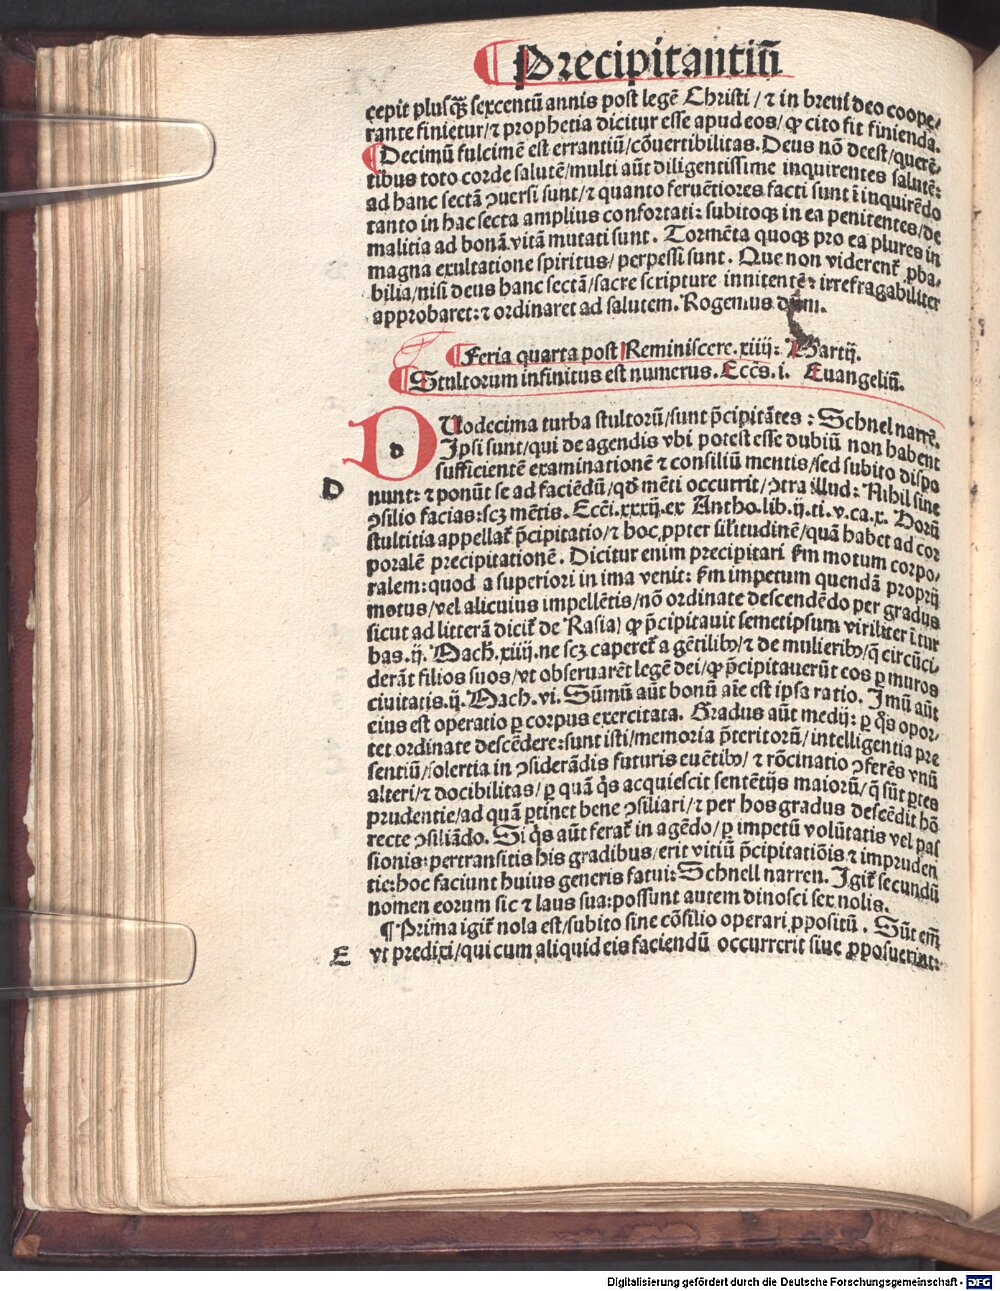 ¶Precipitantiū
cepit plusq̄ sexcentū annis post legē Christi / ⁊ in breui deo coope/
rante finietur / ⁊ prophetia dicitur esse apud eos / ꝙ cito fit finienda.
¶Decimū fulcimē est errantiū / cōuertibilitas. Deus nō deest / querē-
tibus toto corde salutē / multi aūt diligentissime inquirentes salutē:
ad hanc sectā ꝯuersi sunt / ⁊ quanto feruētiores facti sunt ī inquirēdo
tanto in hac secta amplius confortati: subitoqꝫ in ea penitentes / de
malitia ad bonā vitā mutati sunt. Tormēta quoqꝫ pro ea plures in
magna exultatione spiritus / perpessi sunt. Que non viderent̄ ꝓba/
bilia / nisi deus hanc sectā / sacre scripture innitentē: irrefragabiliter
approbaret: ⁊ ordinaret ad salutem. Rogemus dn̄m.
¶Feria quarta post Reminiscere. xiiij: Martij.
¶Stultorum infinitus est numerus. Eccēs. i. Euangeliū.
DUodecima turba stultorū / sunt p̄cipitātes: Schnel narrē.
d
Ipsi sunt / qui de agendis vbi potest esse dubiū non habent
sufficientē examinationē ⁊ consiliū mentis / sed subito dispo
D
nunt: ⁊ ponūt se ad faciēdū / qd̄ mēti occurrit / ꝯtra illud: Nihil sine
ꝯsilio facias: scꝫ mētis. Eccī. xxxij. ex Antho. lib. ij. ti. v. ca. x. Horū
stultitia appellat̄ p̄cipitatio / ⁊ hoc ꝓpter sil̄itudinē / quā habet ad cor
poralē precipitationē. Dicitur enim precipitari s̄m motum corpo/
ralem: quod a superiori in ima venit: s̄m impetum quendā proprij
motus / vel alicuius impellētis / nō ordinate descendēdo per gradus
sicut ad litterā dicit̄ de Rasia) ꝙ p̄cipitauit semetipsum viriliter ī tur
bas. ij. Mach. xiiij. ne scꝫ caperet̄ a gētilibꝫ / ⁊ de mulieribꝫ / q̄ circūci-
derāt filios suos / vt obseruarēt legē dei / ꝙ p̄cipitauerūt eos ꝑ muros
ciuitatis. ij. Mach. vi. Sūmū aūt bonū aīe est ipsa ratio. Imū aūt
eius est operatio ꝑ corpus exercitata. Gradus aūt medij: ꝑ q̄s opor-
tet ordinate descēdere: sunt isti / memoria p̄teritorū / intelligentia pre
sentiū / solertia in ꝯsiderādis futuris euētibꝫ / ⁊ rōcinatio ꝯferēs vnū
alteri / ⁊ docibilitas / ꝑ quā q̄s acquiescit sentētijs maiorū / q̄ sūt ꝑtes
prudentie / ad quā ꝑtinet bene ꝯsiliari / ⁊ per hos gradus descēdit hō
recte ꝯsiliādo. Si q̄s aūt ferat̄ in agēdo / ꝑ impetū volūtatis vel pas
sionis: pertransitis his gradibus / erit vitiū p̄cipitatiōis ⁊ impruden
tie: hoc faciunt huius generis fatui: Schnell narren. Igit̄ secundū
nomen eorum sic ⁊ laus sua: possunt autem dinosci sex nolis.
¶Prima igit̄ nola est / subito sine cōsilio operari ꝓpositū. Sūt em̄
E
vt predixi / qui cum aliquid eis faciendū occurrerit siue ꝓposuerint:
Digitalisierung gefördert durch die Deutsche Forschungsgemeinschaft - DFG